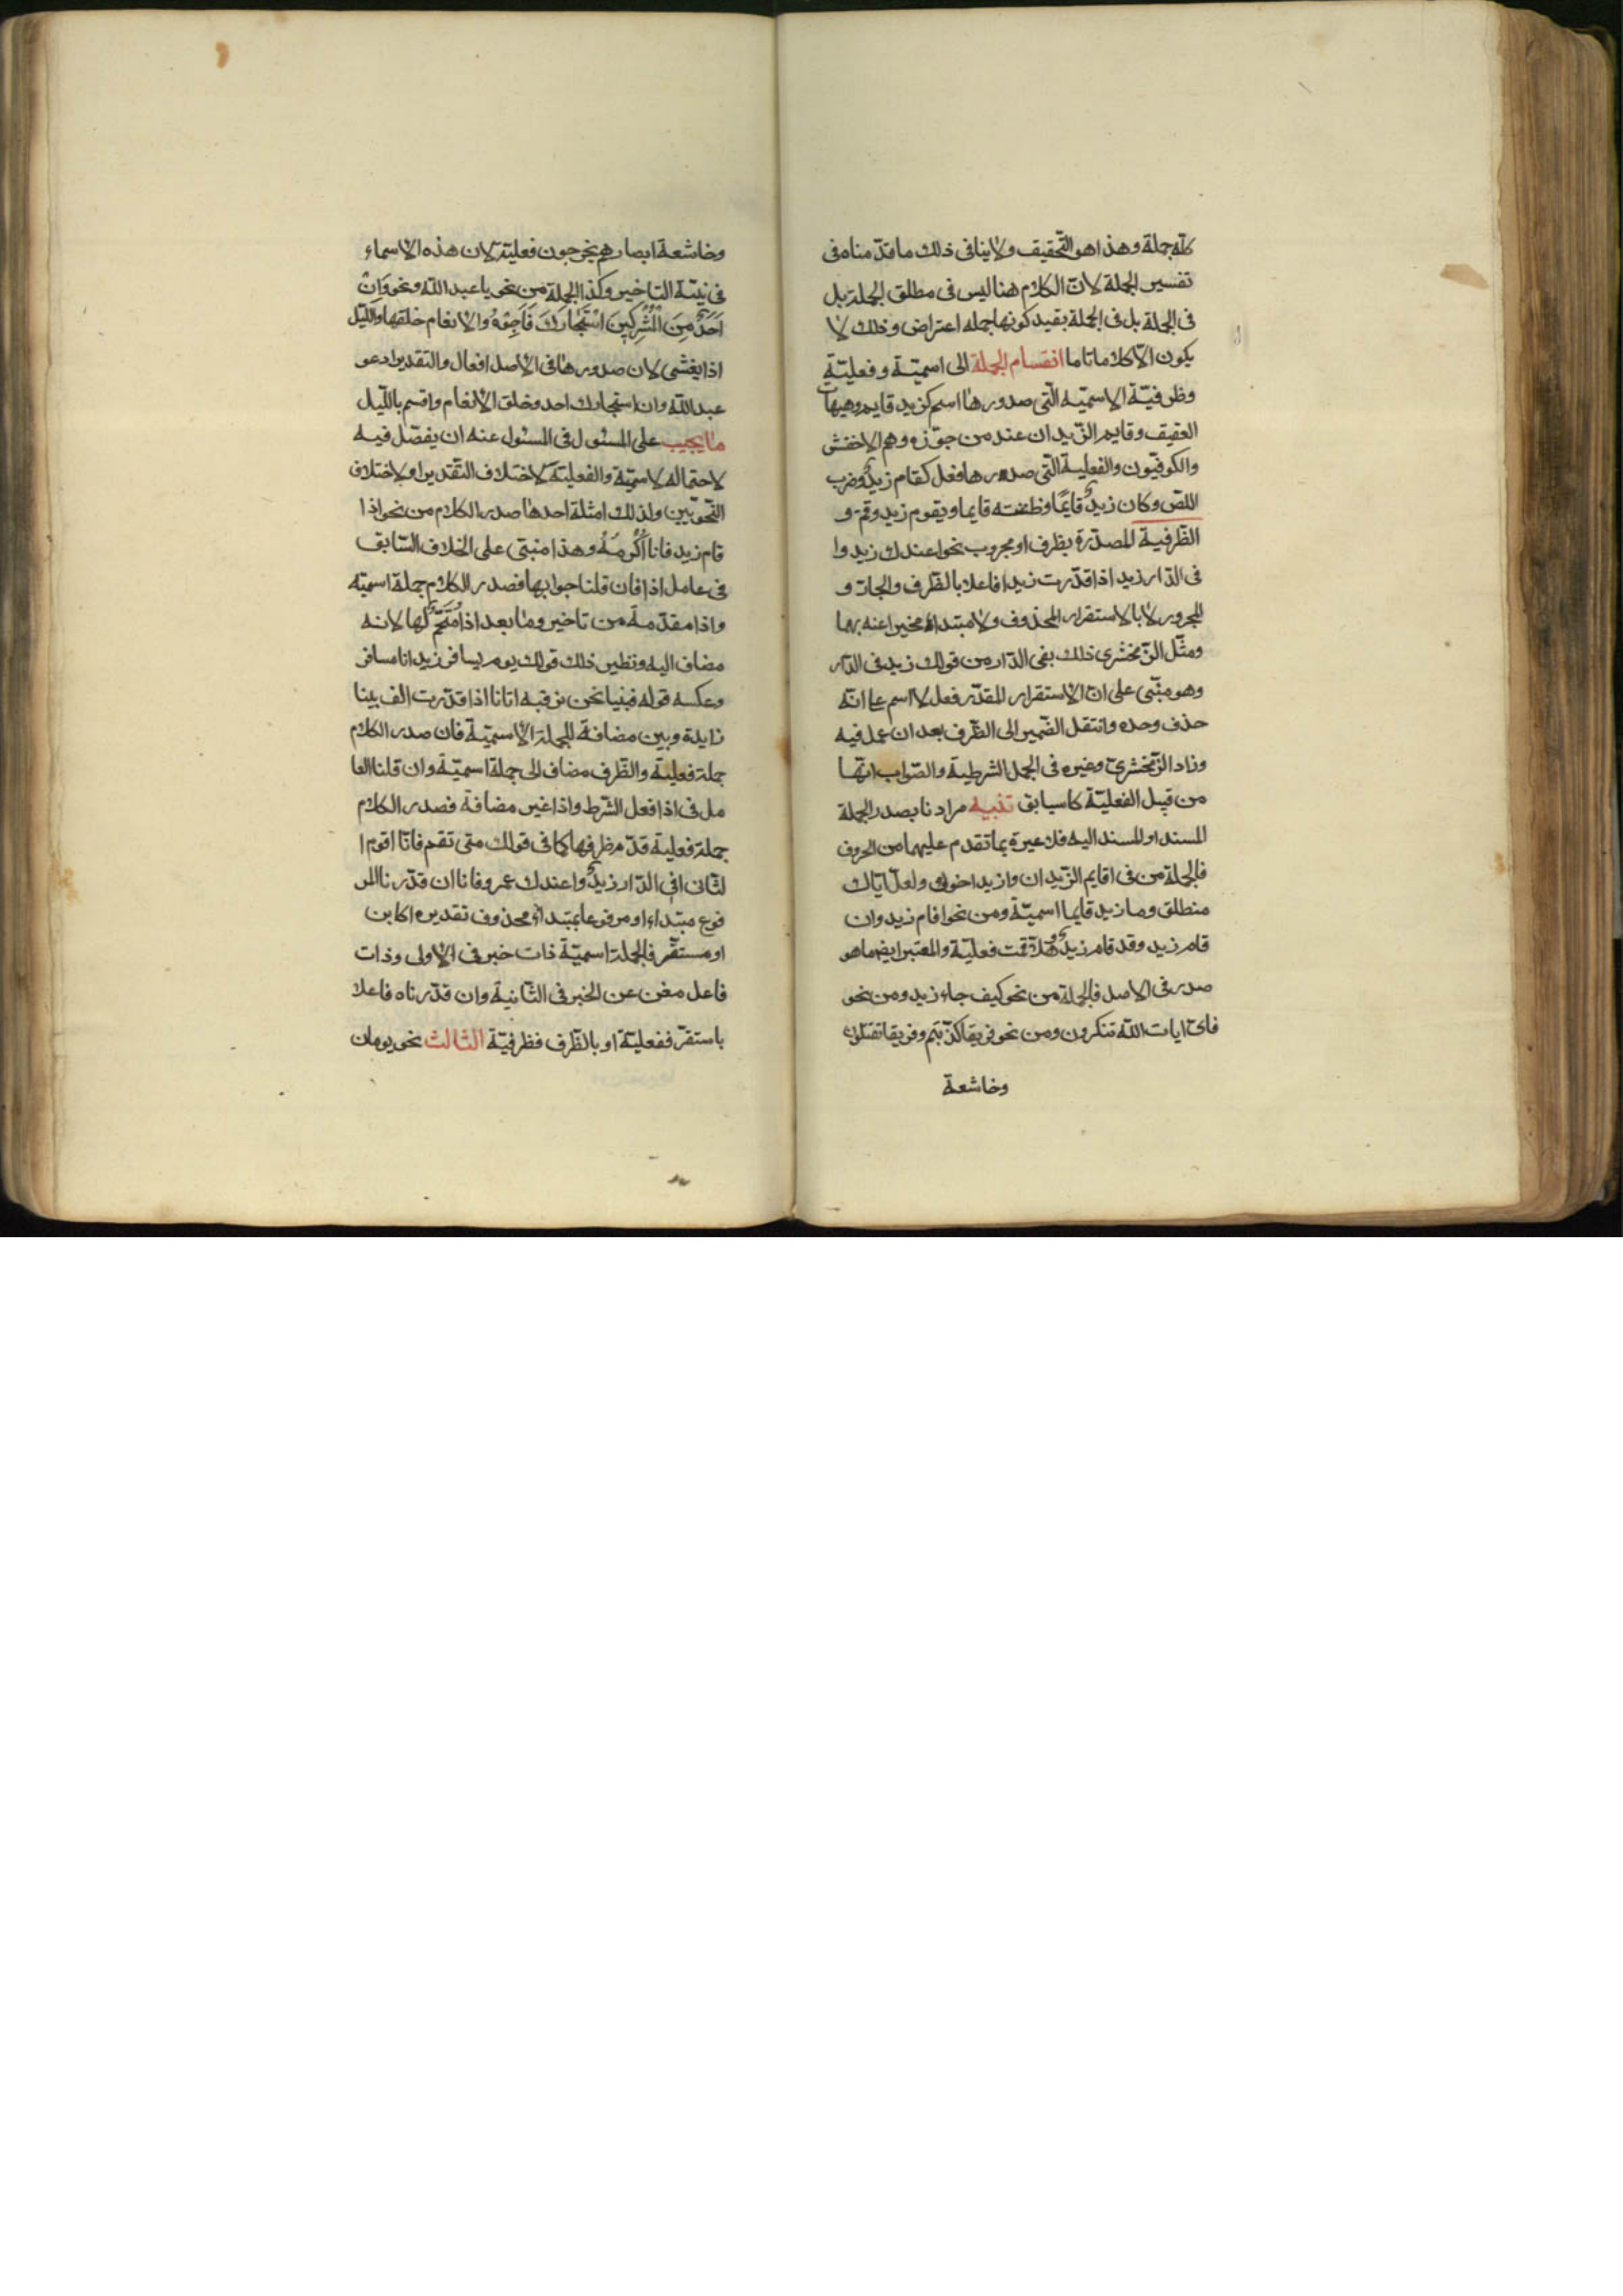 كله جملة وهذا هو التّحقيق ولا ينافى ذلك ما قدّمناه فى
تفسير الجملة لانّ الكلام هنا ليس فى مطلق الجملة بل
فى الجملة بل فى الجملة بقيد كونها جمله اعتراض وذلك لا
يكون الّا كلاما تاما انقسام الجملة الى اسميّة وفعليّة
وظرفيّة الاسميّه الّتى صدورها اسم كزيد قايم وهيهات
العقيق وقايم الزّيدان عند من جوّزه وهم الاخفش
والكوفيّون والفعليّة الّتى صدورها فعل كقام زيدٌ وضرب
اللص وكان زيدٌ قايمًا وظننته قايما ويقوم زيد وقم و
الظّرفية المصدّرة بظرف او مجرور نحو اعندك زيد وا
فى الدّار زيد اذا قدّرت زيدا فاعلا بالظّرف والجارّ و
المجرور لا بالاستقرار المحذوف ولا مبتداء مخبرا عنه بهما
ومثّل الزّمخشرى ذلك بفى الدّار من قولك زيد فى الدّار
وهو مبّنى على انّ الاستقرار المقدّر فعل لا اسم على انّه
حذف وحده وانتقل الضّمير الى الظّرف بعد ان عمل فيه
وزاد الزّمخشرىّ وغيره فى الجمل الشرطية والصّواب انّها
من قبيل الفعليّة كما سياتى تنبيه مرادنا بصدر الجملة
المسند او المسند اليه فلا عبرة بما تقدم عليهما من الحروف
فالجملة من فى اقايم الزّيدان وازيد اخوك ولعلّ اباك
منطلق وما زيد قايما اسميّة ومن نحو اقام زيد وان
قام زيد وقد قام زيدٌ وهلّا قمت فعليّة والمعتبر ايضا ما هو
صدر فى الاصل فالجملة من نحو كيف جاء زيد ومن نحو
فاىّ ايات الله تنكرون ومن نحو فريقا كذّبتم وفريقا تقتلون
وخاشعة
وخاشعة ابصارهم يخرجون فعليّة لان هذه الاسماء
فى نيّة التاخير وكذا الجملة من نحو يا عبد الله ونحو وَاِنْ
اَحَدٌ مِنَ الْمُشْرِكِينَ اسْتَجَارَكَ فَاَجِرْهُ والانعام خلقها واللّيل
اذا يغشى لان صدورها فى الاصل افعال والتقدير ادعو
عبد اللّه وان استجارك احد وخلق الانعام واقسم باللّيل
ما يجيب على المسئول فى المسئول عنه ان يفصّل فيه
لاحتماله لاسميّة والفعليّة لاختلاف التقدير او لاختلاف
النّحويّين ولذلك امثلة احدها صدر الكلام من نحو اذا
قام زيد فانا اُكْرِمُهُ وهذا مبنى على الخلاف السّابق
فى عامل اذا فان قلنا جوابها فصدر الكلام جملة اسميّه
واذا مقدّمة من تاخير وما بعد اذا مُتَمِّمٌ لها لانه
مضاف اليه ونظير ذلك قولك يوم يسافر زيد انا مسافر
وعكسه قوله فبنيا نحن نرقبه اتانا اذا قدّرت الف بينا
زايدة وبين مضافة للجملة الاسميّة فان صدر الكلام
جملة فعلية والظّرف مضاف الى جملة اسميّة وان قلنا العا
مل فى اذا فعل الشّرط واذا غير مضافة فصدر الكلام
جملة فعلية قدّم ظرفها كما فى قولك متى تقم فانّا اقوم ا
لثّانى افى الدّار زيدٌ واعندك عمرو فانا ان قدّرنا المر
فوع مبتداء او مرفوعا بمبتداءٍ محذوف تقديره اكاين
او مستقّر فالجملة اسميّة ذات خبر فى الاولى وذات
فاعل مغن عن الخبر فى الثّانية وان قدّرناه فاعلا
باستقرّ ففعليّة او بالظّرف فظرفيّة الثالث نحو يومان